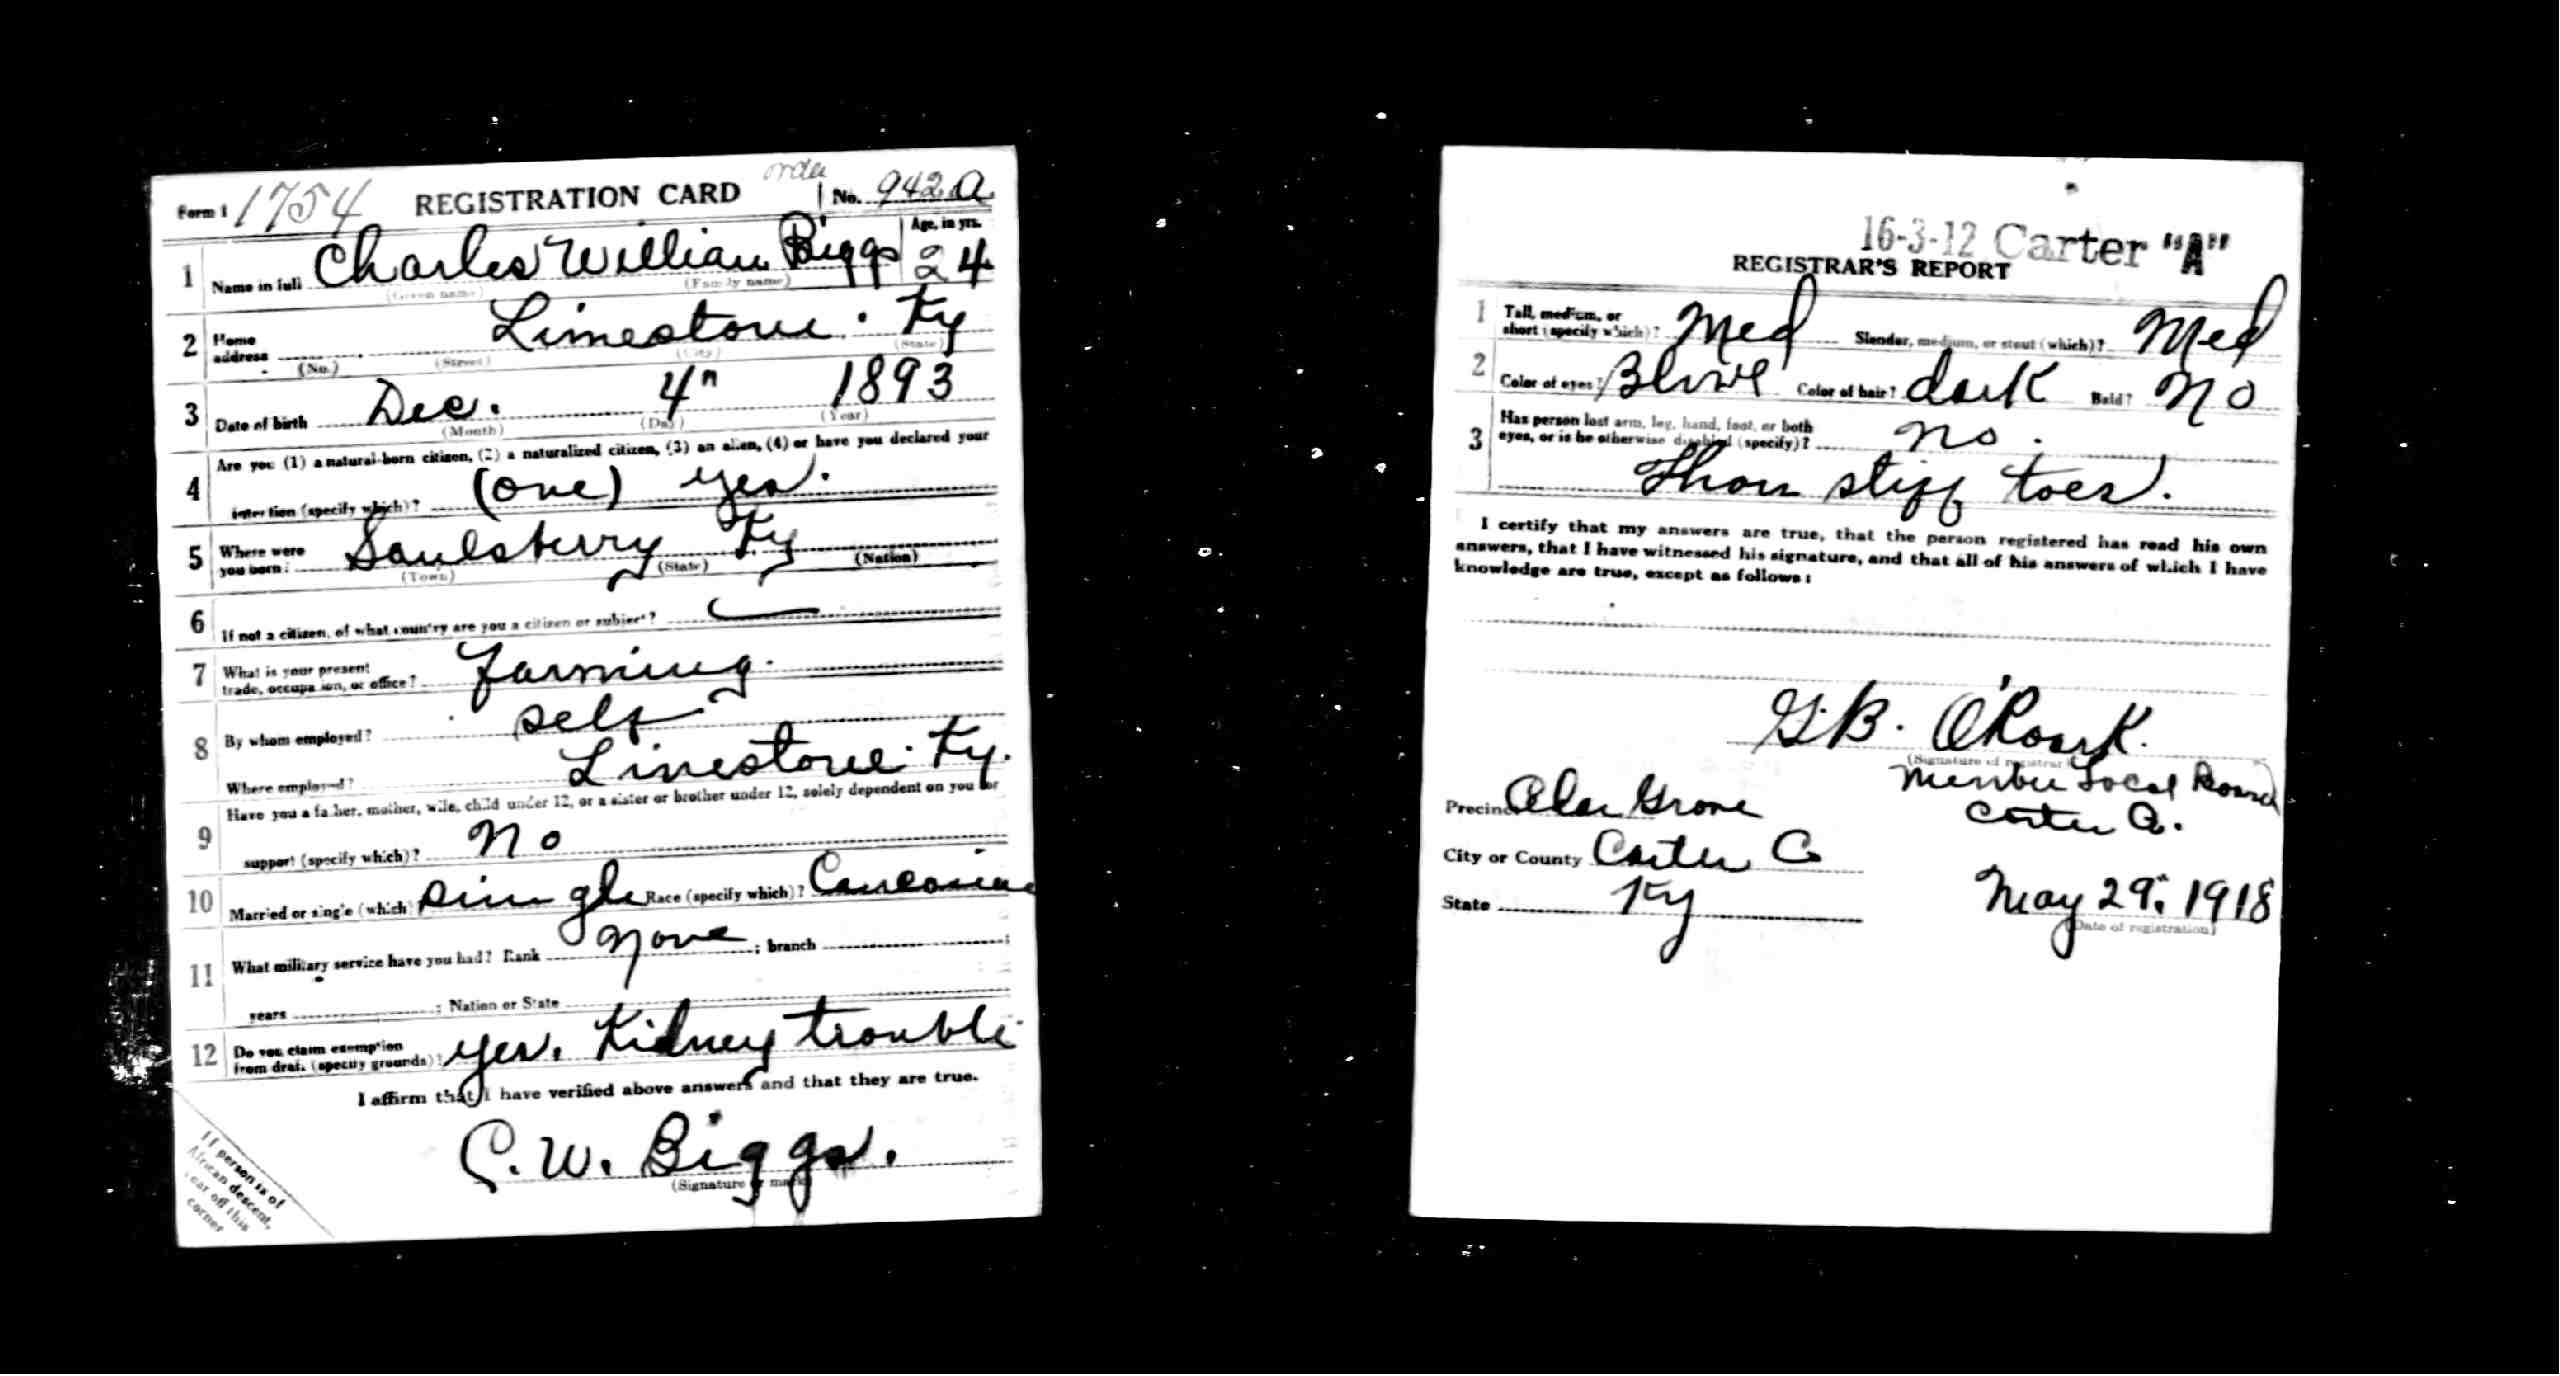 order
Form 1 1754 REGISTRATION CARD No. 942 A
1 Name in full Charles William Biggs Age, in yrs. 24
(Given name) (Family name)
2 Home address Limestone. Ky
(No.) (Street) (City) (State)
3 Date of birth Dec. 4" 1893
(Month) (Day) (Year)
4 Are you (1) a natural-born citizen, (2) a naturalized citizen, (3) an alien, (4) or have you declared your
intention (specify which)? (one) yes.
5 Where were you born? Saulsberry Ky
(Town) (State) (Nation)
6 If not a citizen, of what country are you a citizen or subject?
7 What is your present trade, occupation, or office? farming.
8 By whom employed? self
Where employed? Limestone. Ky.
9 Have you a father, mother, wife, child under 12, or a sister or brother under 12, solely dependent on you for
support (specify which)? no
10 Married or single (which) single Race (specify which)? Caucasian
11 What military service have you had? Rank None ; branch ;
years ; Nation or State
12 Do you claim exemption from draft (specify grounds)? yes. Kidney trouble
I affirm that I have verified above answers and that they are true.
C. W. Biggs.
(Signature or mark)
If person is of
African descent,
tear off this
corner
16-3-12 Carter "A"
REGISTRAR'S REPORT
1 Tall, medium, or short (specify which)? Med Slender, medium, or stout (which)? Med
2 Color of eyes? Color of hair? dark Bald? No
3 Has person lost arm, leg, hand, foot, or both
eyes, or is he otherwise disabled (specify)? no.
stiff toes.
I certify that my answers are true, that the person registered has read his own
answers, that I have witnessed his signature, and that all of his answers of which I have
knowledge are true, except as follows:
G.B. O'Roark.
(Signature of registrar)
Precinct Grove Member Local Board
Carter Co.
City or County Carter Co
State Ky May 29. 1918
(Date of registration)